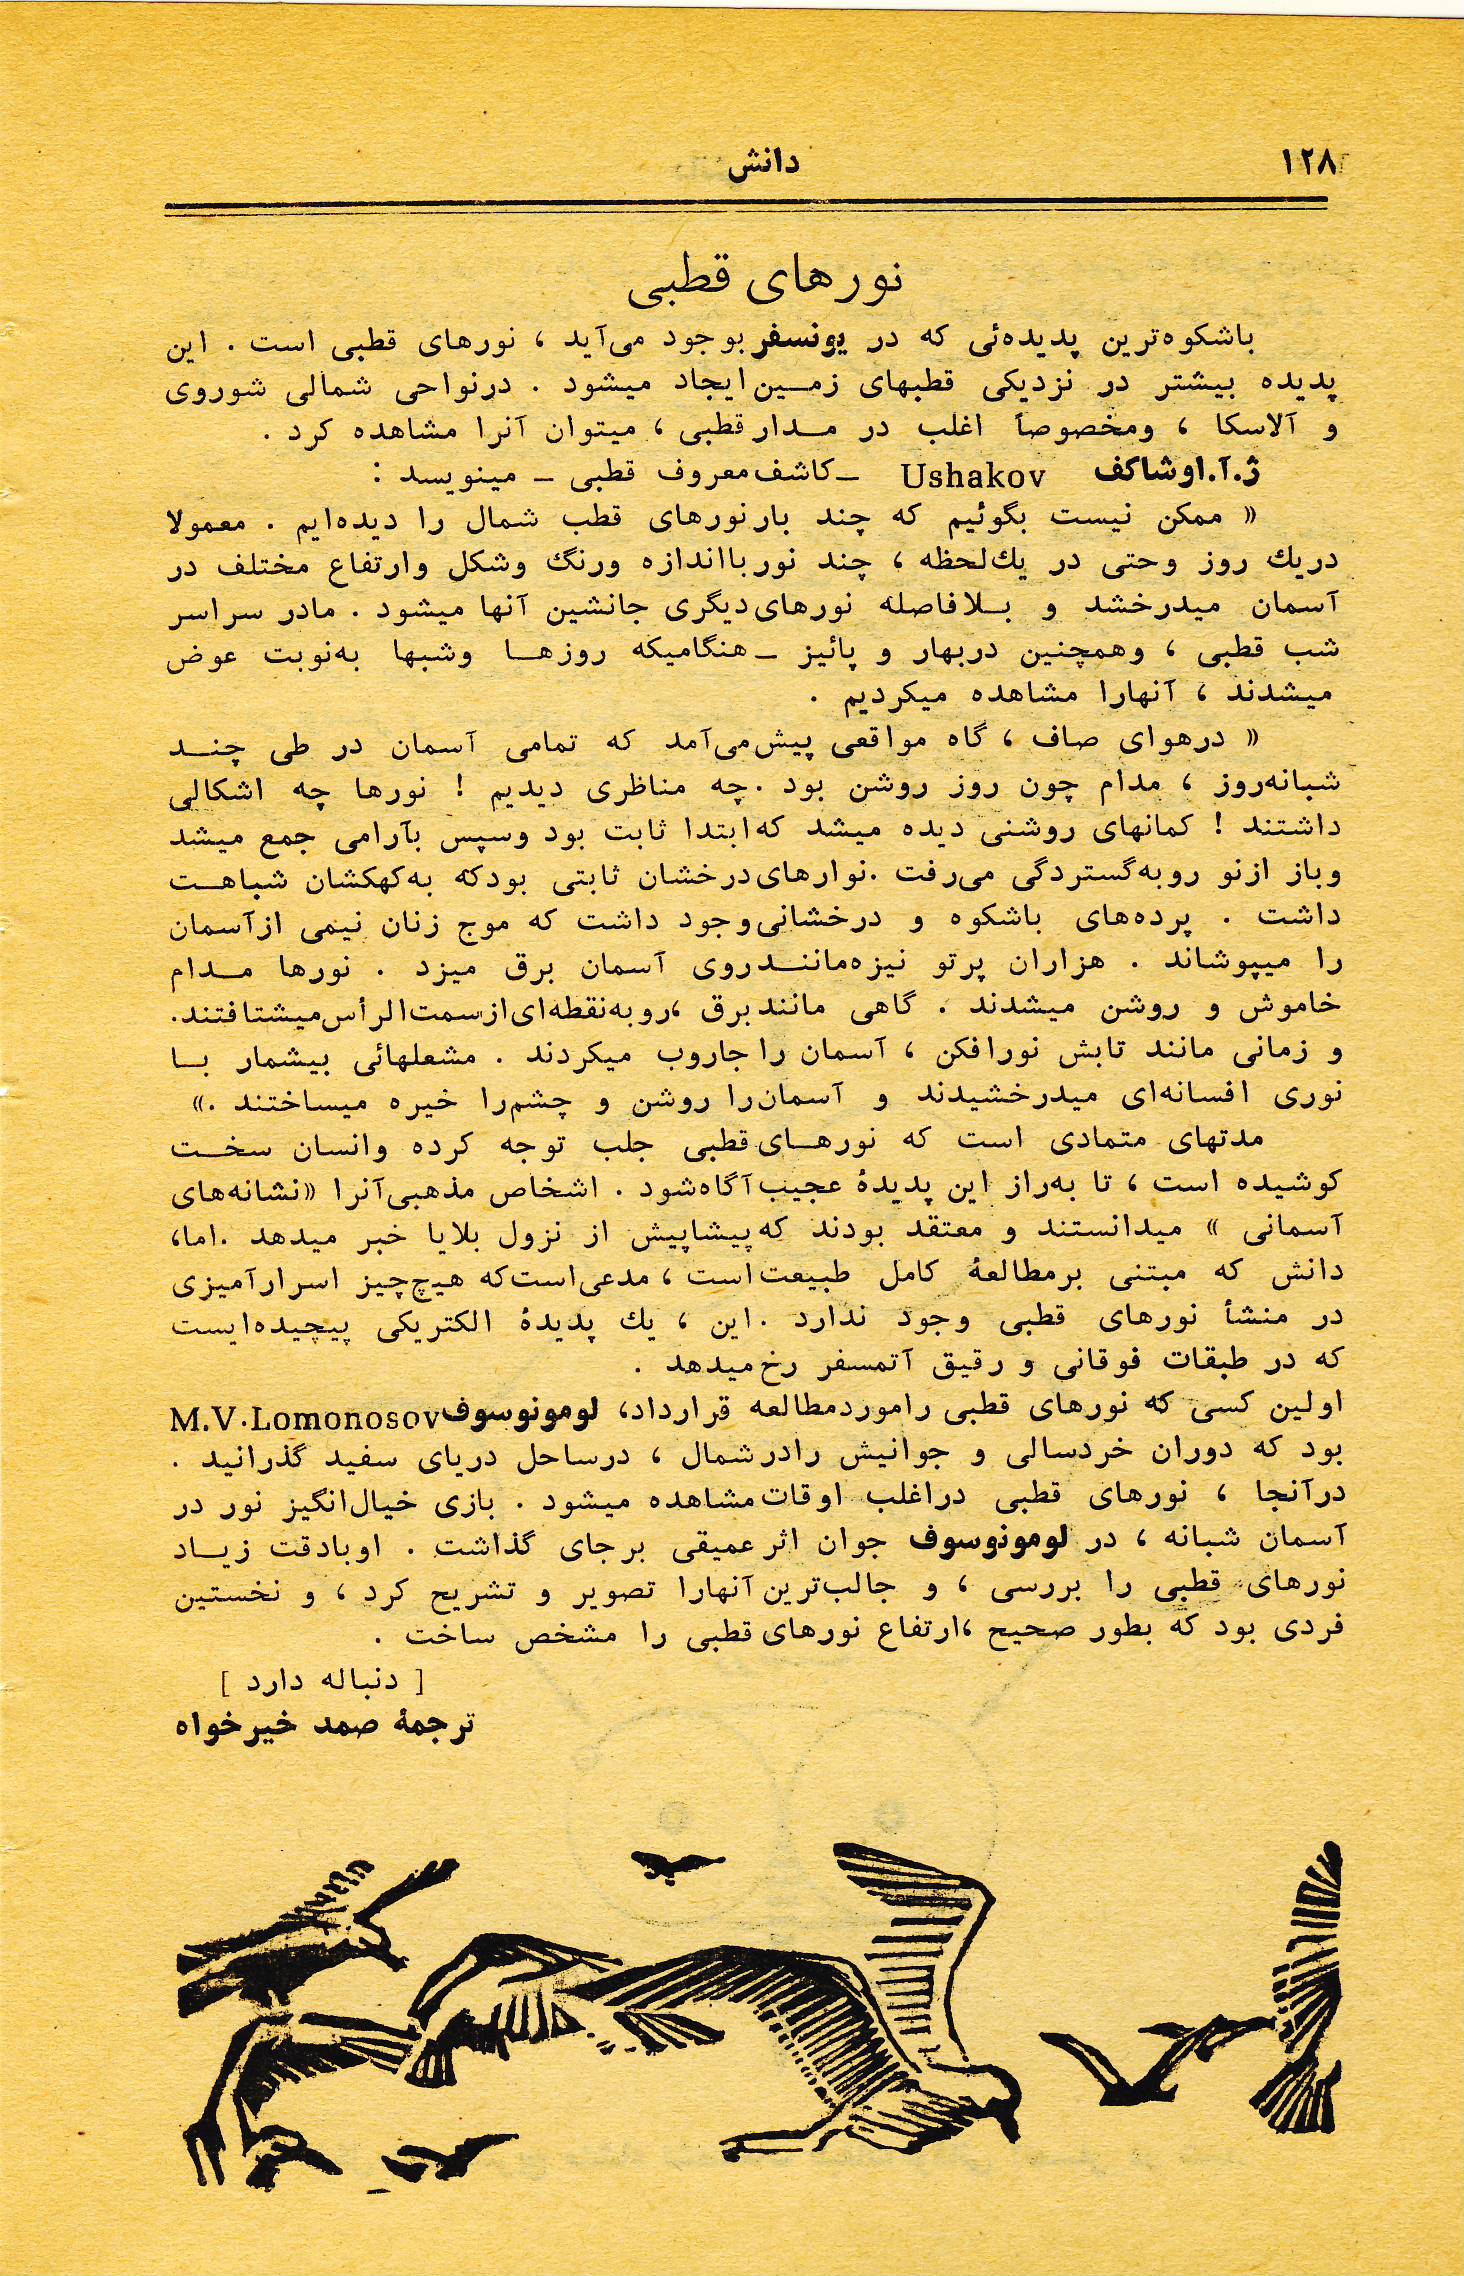 ۱۲۸
دانش
نورهای قطبی
باشکوه‌ترین پدیده‌ئی که در یونسفر بوجود می‌آید ، نورهای قطبی است . این
پدیده بیشتر در نزدیکی قطبهای زمــین ایجاد میشود . درنواحی شمالی شوروی
و آلاسکا ، ومخصوصاً اغلب در مــدار قطبی ، میتوان آنرا مشاهده کرد .
ژ.آ.اوشاکف Ushakov ــ کاشف معروف قطبی ــ مینویسد :
« ممکن نیست بگوئیم که چند بار نورهای قطب شمال را دیده‌ایم . معمولا
دریك روز وحتی در یك‌لحظه ، چند نور بااندازه ورنگ وشکل وارتفاع مختلف در
آسمان میدرخشد و بــلافاصله نورهای دیگری جانشین آنها میشود . مادر سراسر
شب قطبی ، وهمچنین دربهار و پائیز ــ هنگامیکه روزهــا وشبها به‌نوبت عوض
میشدند ، آنهارا مشاهده میکردیم .
« درهوای صاف ، گاه مواقعی پیش‌می‌آمد که تمامی آسمان در طی چنــد
شبانه‌روز ، مدام چون روز روشن بود . چه مناظری دیدیم ! نورها چه اشکالی
داشتند ! کمانهای روشنی دیده میشد که ابتدا ثابت بود وسپس بآرامی جمع میشد
وباز ازنو روبه‌گستردگی می‌رفت . نوارهای درخشان ثابتی بودکه به‌کهکشان شباهــت
داشت . پرده‌های باشکوه و درخشانی وجود داشت که موج زنان نیمی ازآسمان
را میپوشاند . هزاران پرتو نیزه‌ماننــد روی آسمان برق میزد . نورها مــدام
خاموش و روشن میشدند . گاهی مانند برق ،روبه‌نقطه‌ای ازسمت‌الرأس میشتافتند.
و زمانی مانند تابش نورافکن ، آسمان را جاروب میکردند . مشعلهائی بیشمار بــا
نوری افسانه‌ای میدرخشیدند و آسمان‌را روشن و چشم‌را خیره میساختند .»
مدتهای متمادی است که نورهــای قطبی جلب توجه کرده وانسان سخــت
کوشیده است ، تا به‌راز این پدیدهٔ عجیب آگاه‌شود . اشخاص مذهبی آنرا «نشانه‌های
آسمانی » میدانستند و معتقد بودند که پیشاپیش از نزول بلایا خبر میدهد .اما،
دانش که مبتنی برمطالعهٔ کامل طبیعت است ، مدعی‌است‌که هیچ‌چیز اسرارآمیزی
در منشأ نورهای قطبی وجود ندارد . این ، یك پدیدهٔ الکتریکی پیچیده‌ایست
که در طبقات فوقانی و رقیق آتمسفر رخ میدهد .
اولین کسی که نورهای قطبی راموردمطالعه قرارداد، لومونوسوف M.V.Lomonosov
بود که دوران خردسالی و جوانیش رادر شمال ، درساحل دریای سفید گذرانید .
درآنجا ، نورهای قطبی دراغلب اوقات مشاهده میشود . بازی خیال‌انگیز نور در
آسمان شبانه ، در لومونوسوف جوان اثر عمیقی برجای گذاشت . اوبادقت زیــاد
نورهای قطبی را بررسی ، و جالب‌ترین آنهارا تصویر و تشریح کرد ، و نخستین
فردی بود که بطور صحیح ،ارتفاع نورهای قطبی را مشخص ساخت .
[ دنباله دارد ]
ترجمهٔ صمد خیرخواه